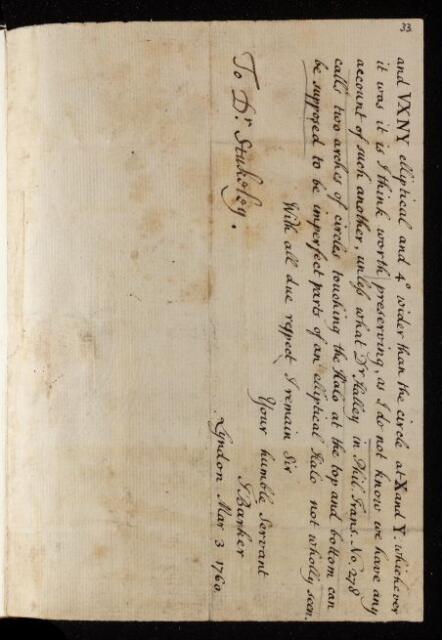 33
and VXNY elliptical and 4° wider than the circle at X and Y. whichever
it was it is I think worth preserving, as I do not know we have any
account of such another, unless what Dr Halley in Phil. Trans. No. 278
calls two arches of circles touching the Halo at the top and bottom can
be supposed to be imperfect parts of an elliptical Halo not wholly seen.
With all due respect I remain Sir
Your humble Servant
T Barker
Lyndon Mar 3 1760
To Dr. Stukeley.